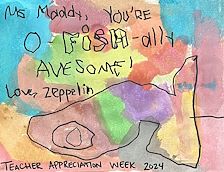 Ms Maddy, YOU'RE
O-FISH-ally
AWESOME!
Love, Zeppelin
TEACHER APPRECIATION WEEK 2024